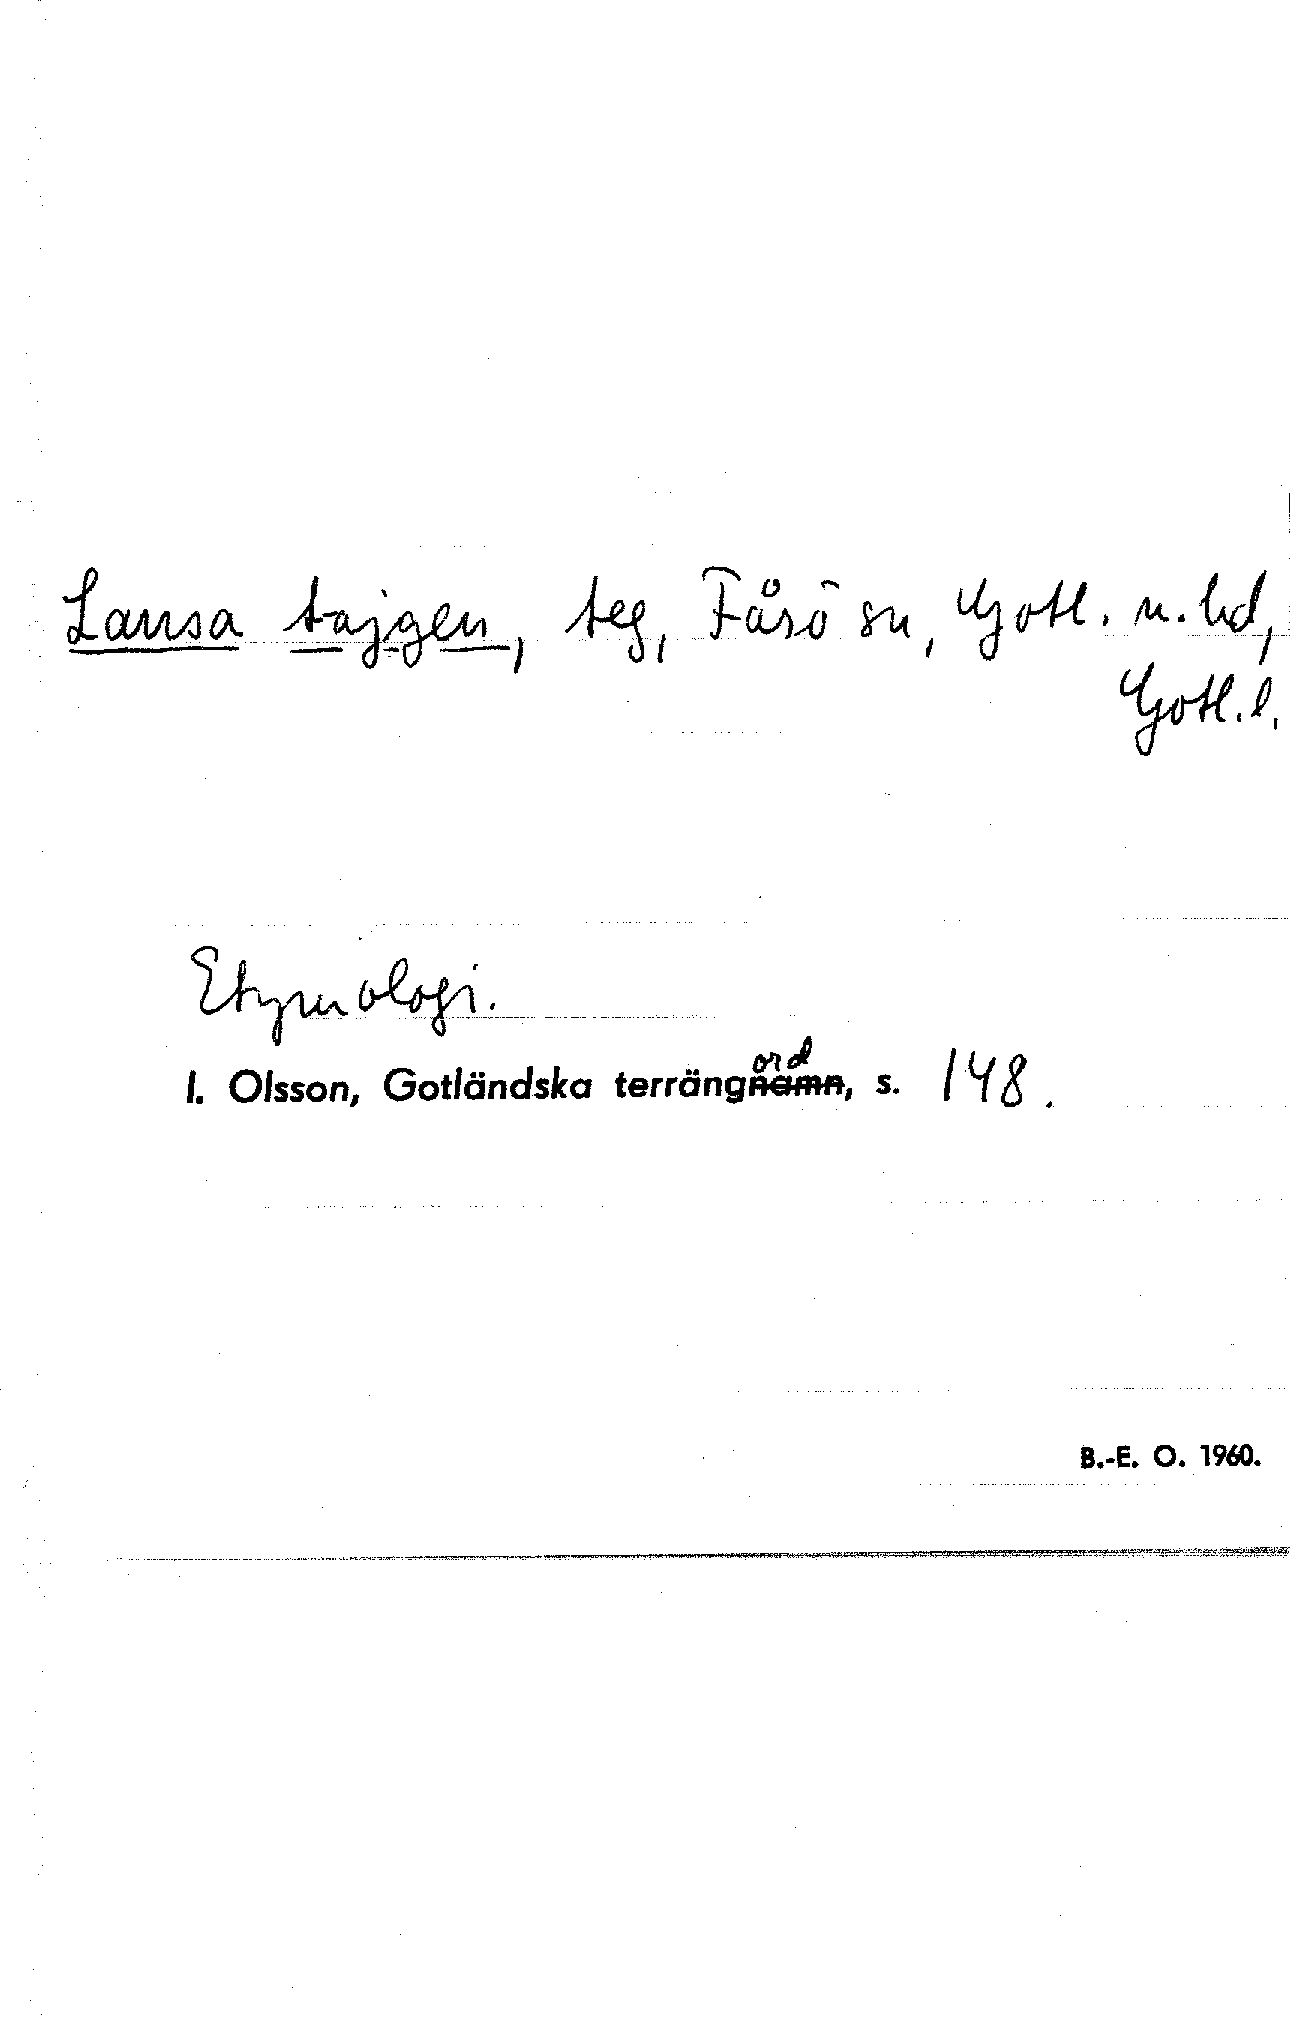 Lansa tajgen, teg, Fårö sn, Gotl. n. hd,
Gotl. l.
Etymologi.
ord
I. Olsson, Gotländska terrängnamn, s. 148.
B.-E. O. 1960.